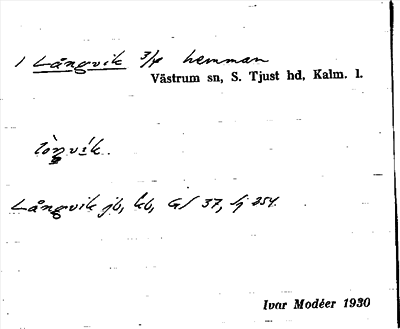 1 Långvik 3/4 hemman
Västrum sn, S. Tjust hd, Kalm. l.
lòŋvík.
Långvik jb, kb, Gs 37, lj 254.
Ivar Modéer 1930